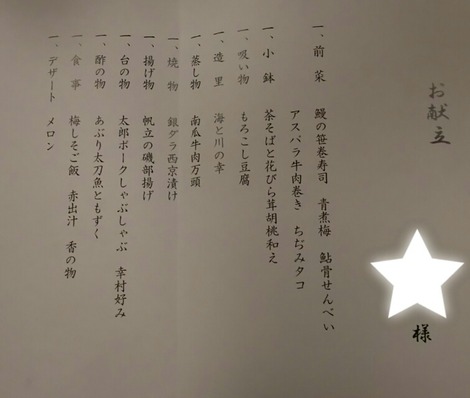 お献立
様
一、前菜 鰻の笹巻寿司 青煮梅 鮎骨せんべい
アスパラ牛肉巻き ちぢみタコ
一、小鉢 茶そばと花びら茸胡桃和え
一、吸い物 もろこし豆腐
一、造里 海と川の幸
一、蒸し物 南瓜牛肉万頭
一、焼物 銀ダラ西京漬け
一、揚げ物 帆立の磯部揚げ
一、台の物 太郎ポークしゃぶしゃぶ 幸村好み
一、酢の物 あぶり太刀魚ともずく
一、食事 梅しそご飯 赤出汁 香の物
一、デザート メロン